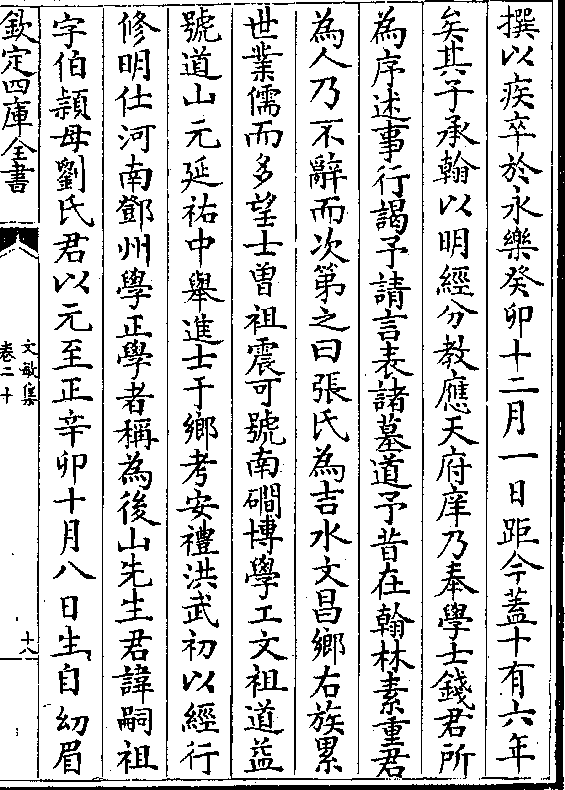 撰以疾卒於永樂癸卯十二月一日距今蓋十有六年
矣其子承翰以明經分教應天府庠乃奉學士錢君所
為序述事行謁予請言表諸墓道予昔在翰林素重君
為人乃不辭而次第之曰張氏為吉水文昌鄉右族累
世業儒而多望士曽祖震可號南磵博學工文祖道益
號道山元延祐中舉進士于鄉考安禮洪武初以經行
修明仕河南鄧州學正學者稱為後山先生君諱嗣祖
字伯頴母劉氏君以元至正辛卯十月八日生自幼眉
欽定四庫全書
文敏集
卷二十
十八